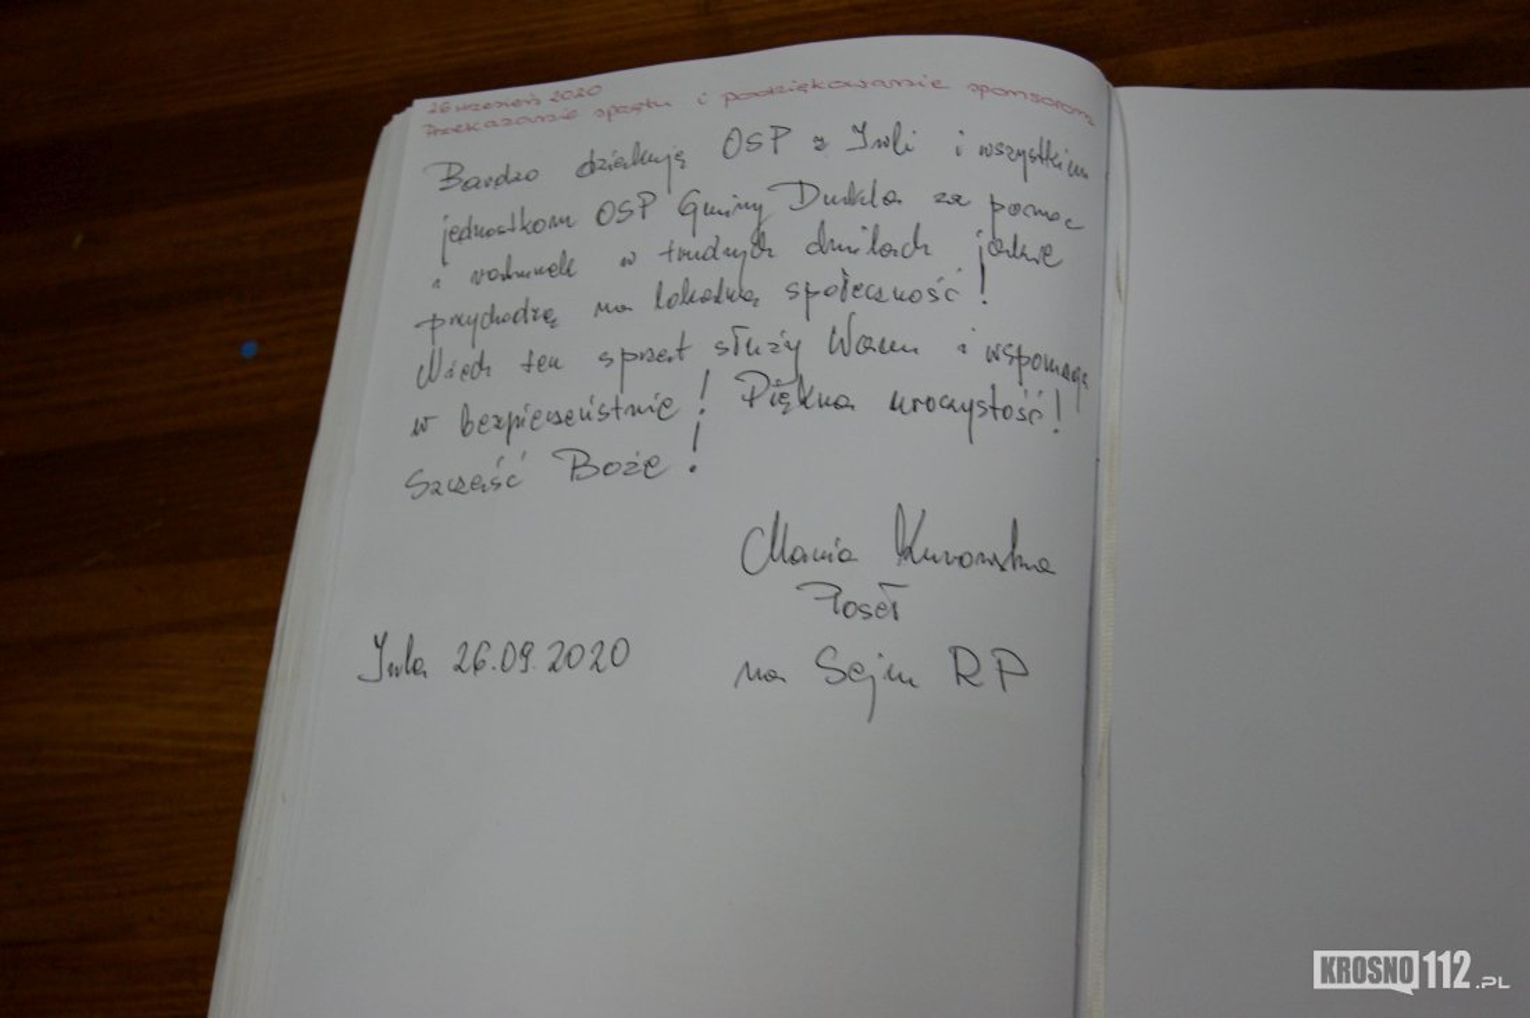 26 wrzesień 2020
Przekazanie sprzętu i podziękowanie sponsorom
Bardzo dziękuję OSP z Iwli i wszystkim
jednostkom OSP Gminy Dukla za pomoc
i ratunek w trudnych chwilach jakie
przychodzą na lokalną społeczność!
Niech ten sprzęt służy Wam i wspomaga
w bezpieczeństwie! Piękna uroczystość!
Szczęść Boże!
Maria Kurowska
Poseł
na Sejm RP
Iwla 26.09.2020
KROSNO112.PL